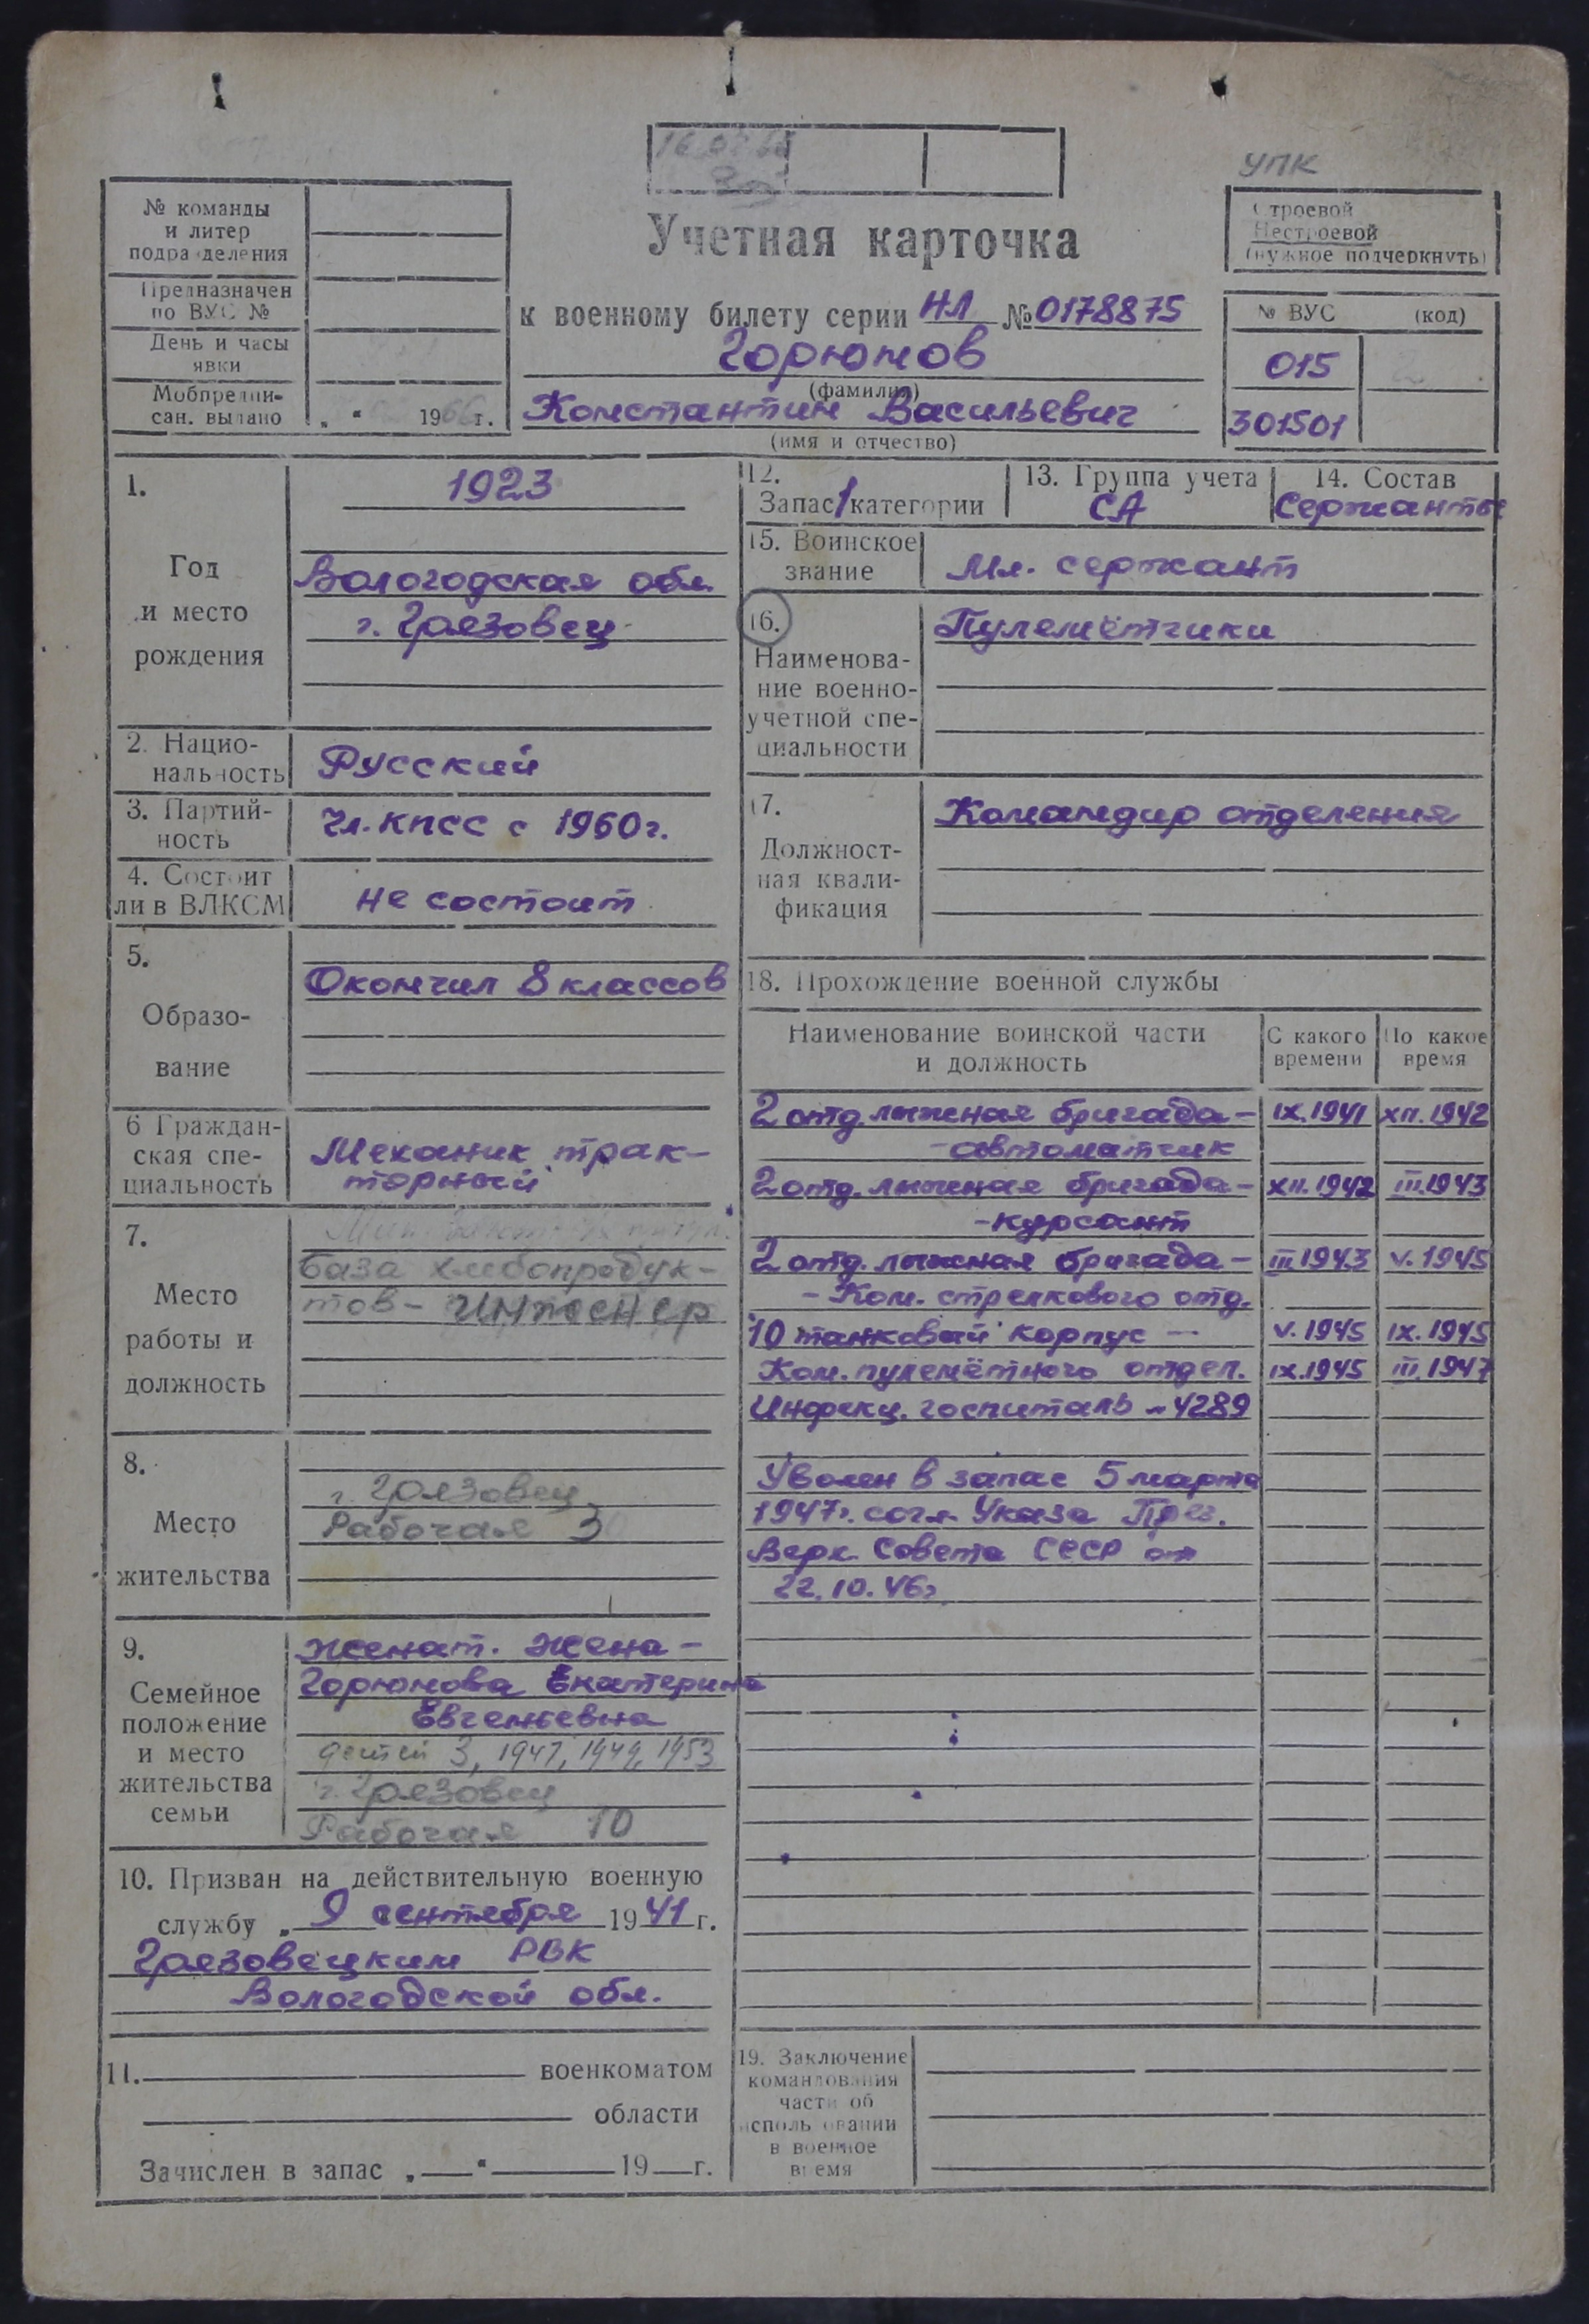 УПК
№ команды
и литер
подразделения
Предназначен
по ВУС №
День и часы
явки
Мобпредпи-
сан. выдано
„ “ 1966 г.
Учетная карточка
к военному билету серии НЛ № 0178875
Горюнов
(фамилия)
Константин Васильевич
(имя и отчество)
Строевой
Нестроевой
(нужное подчеркнуть)
№ ВУС (код)
015
301501
1.
Год
и место
рождения
1923
Вологодская обл.
г. Грязовец
2. Нацио-
нальность
Русский
3. Партий-
ность
Чл. КПСС с 1960 г.
4. Состоит
ли в ВЛКСМ
не состоит
5.
Образо-
вание
Окончил 8 классов
6 Граждан-
ская спе-
циальность
Механик трак-
торный
7.
Место
работы и
должность
База хлебопродук-
тов - инженер
8.
Место
жительства
г. Грязовец
Рабочая 3
9.
Семейное
положение
и место
жительства
семьи
Женат. Жена -
Горюнова Екатерина
Евгеньевна
детей 3, 1947, 1949, 1953
г. Грязовец
Рабочая 10
10. Призван на действительную военную
службу „ 9 сентября 1941 г.
Грязовецким РВК
Вологодской обл.
11. военкоматом
области
Зачислен в запас „ “ 19 г.
12.
Запас 1 категории
13. Группа учета
СА
14. Состав
Сержанты
15. Воинское
звание
Мл. сержант
16.
Наименова-
ние военно-
учетной спе-
циальности
Пулемётчики
17.
Должност-
ная квали-
фикация
Командир отделения
18. Прохождение военной службы
Наименование воинской части
и должность
С какого
времени
По какое
время
2 отд. лыжная бригада - IX.1941 XII.1942
- автоматчик
2 отд. лыжная бригада - XII.1942 III.1943
- курсант
2 отд. лыжная бригада - III 1943 V.1945
- Ком. стрелкового отд.
10 танковый корпус — V.1945 IX.1945
Ком. пулемётного отдел. IX.1945 III.1947
Инфекц. госпиталь № 4289
Уволен в запас 5 марта
1947 г. согл. Указа През.
Верх. Совета СССР от
22.10.46 г.
19. Заключение
командования
части об
использовании
в военное
время